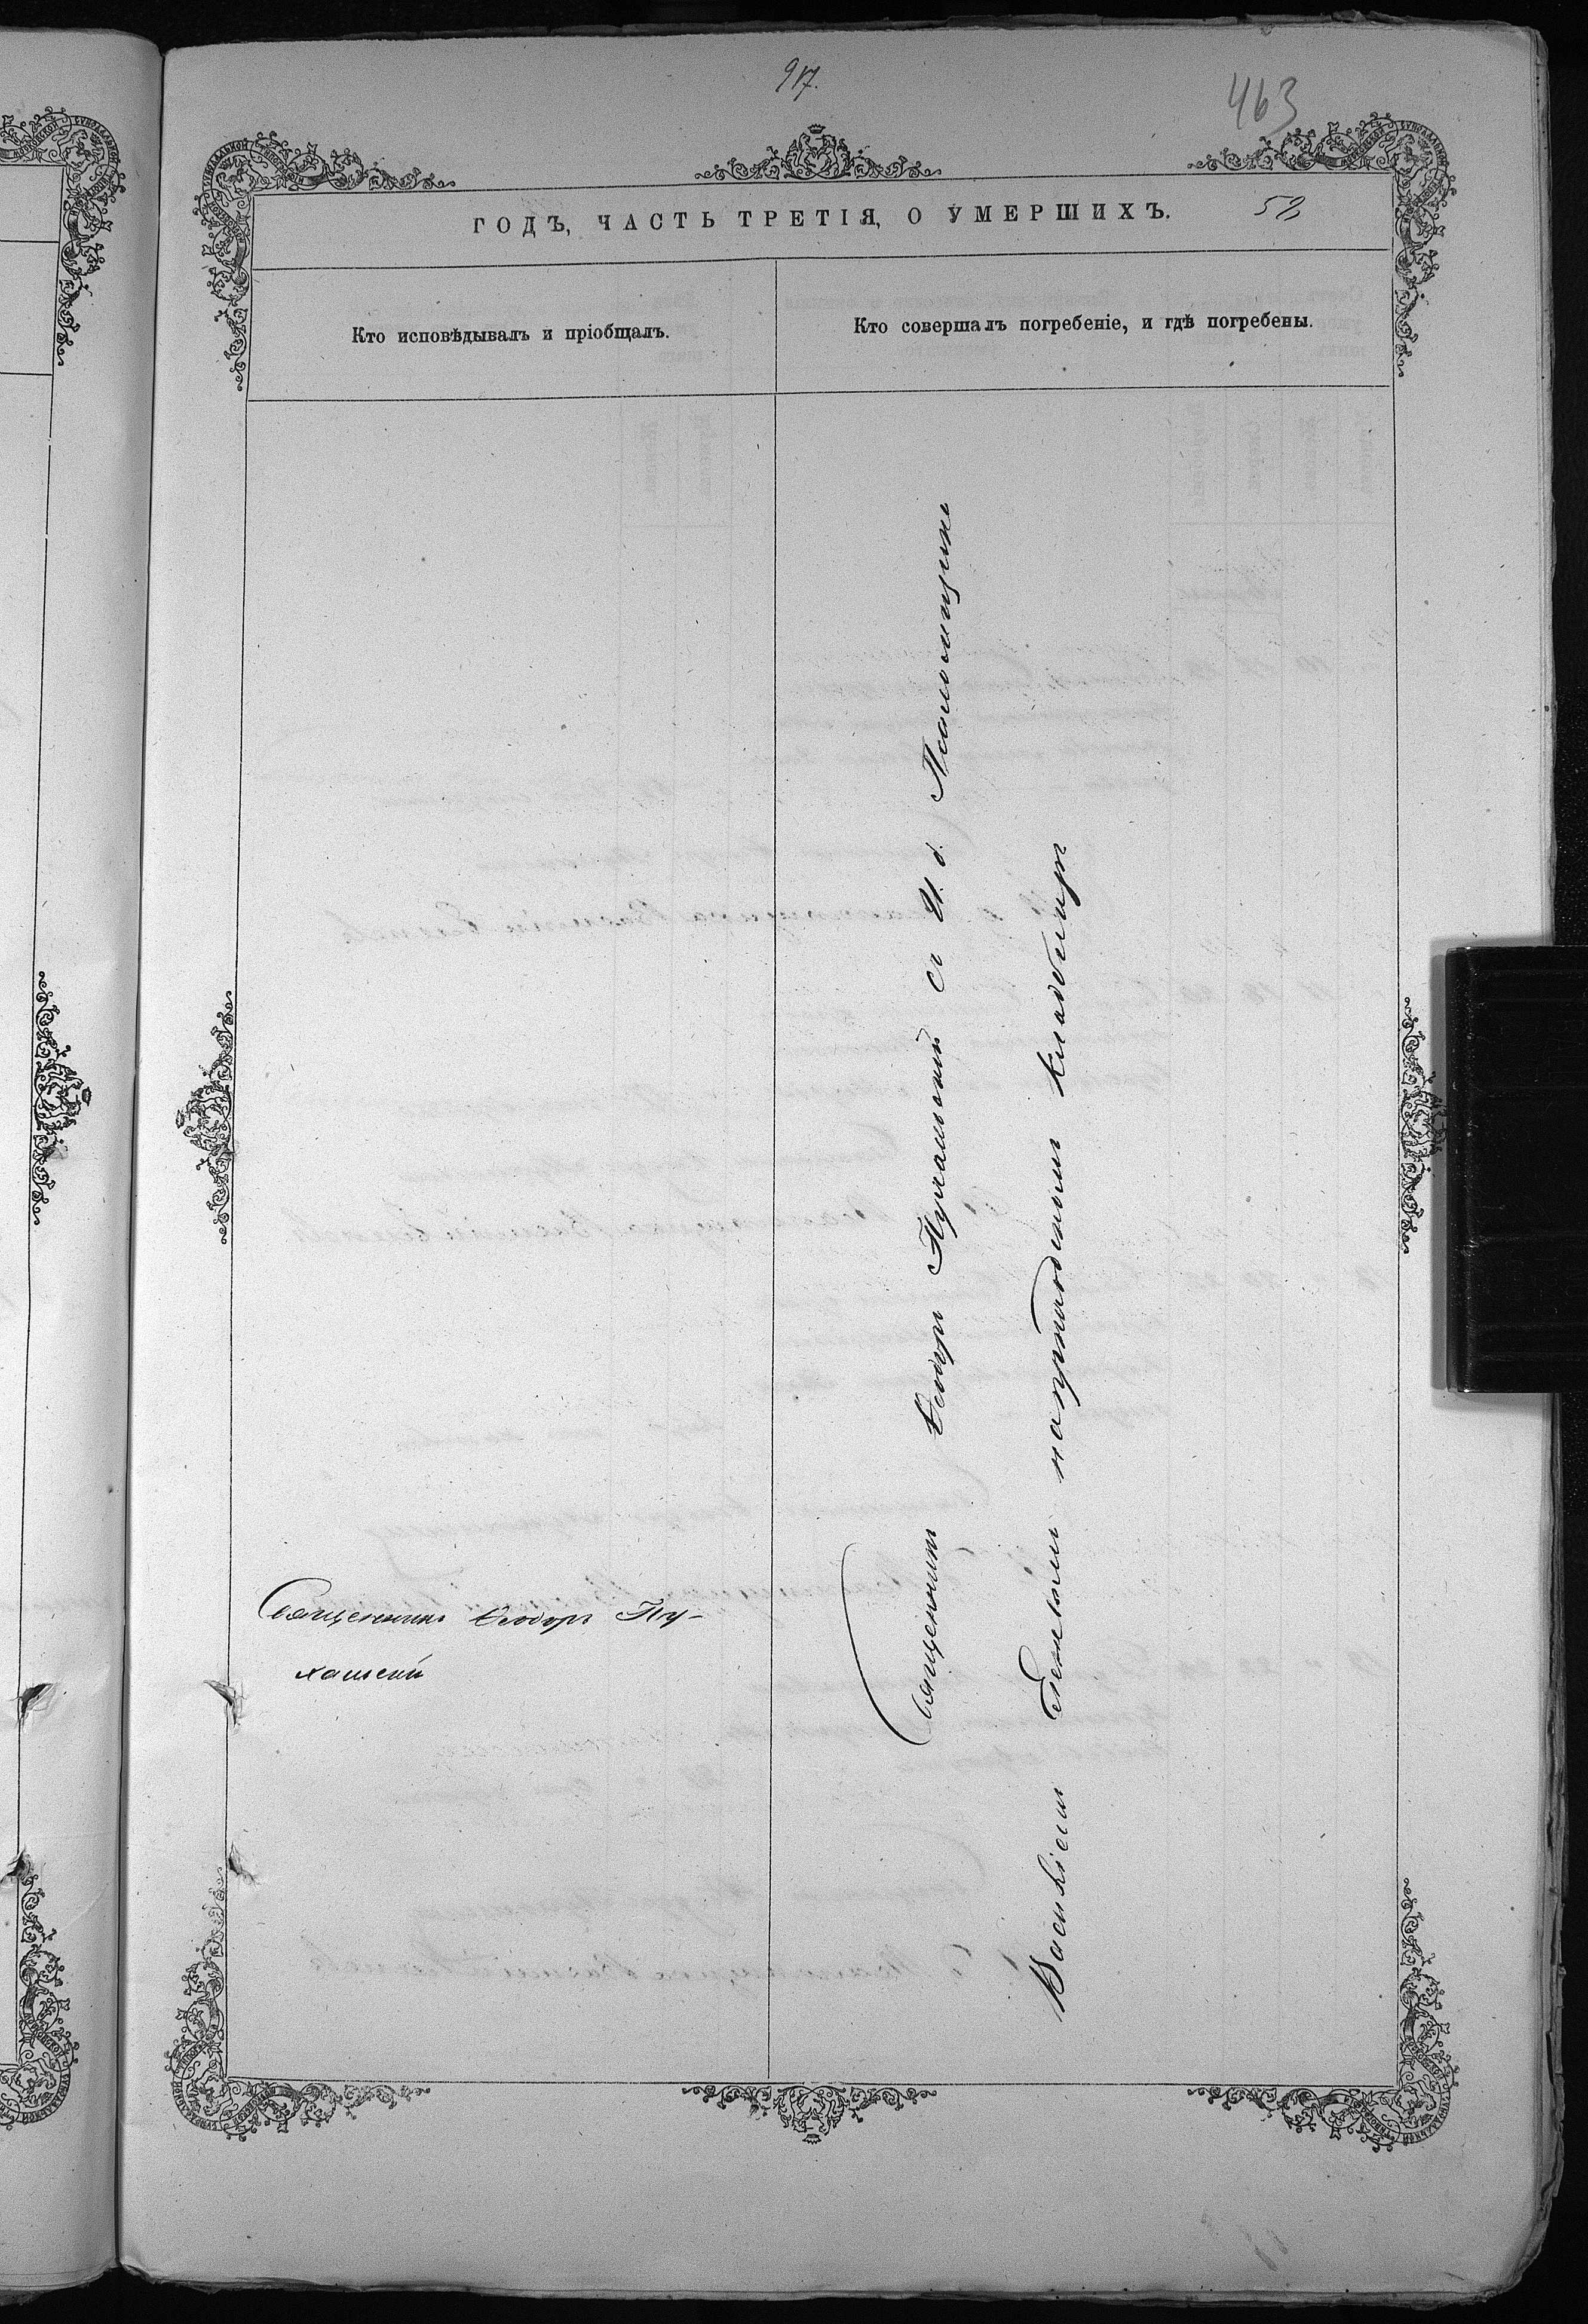 917.
463
ГОДЪ, ЧАСТЬ ТРЕТІЯ, О УМЕРШИХЪ.
52
Кто исповѣдывалъ и пріобщалъ.
Кто совершалъ погребеніе, и гдѣ погребены.
Священникъ Ѳеодоръ Пу-
хальскій
Священникъ Ѳеодоръ Пухальскій съ И. д. Псаломщика
Василіемъ на приходскомъ кладбищѣ